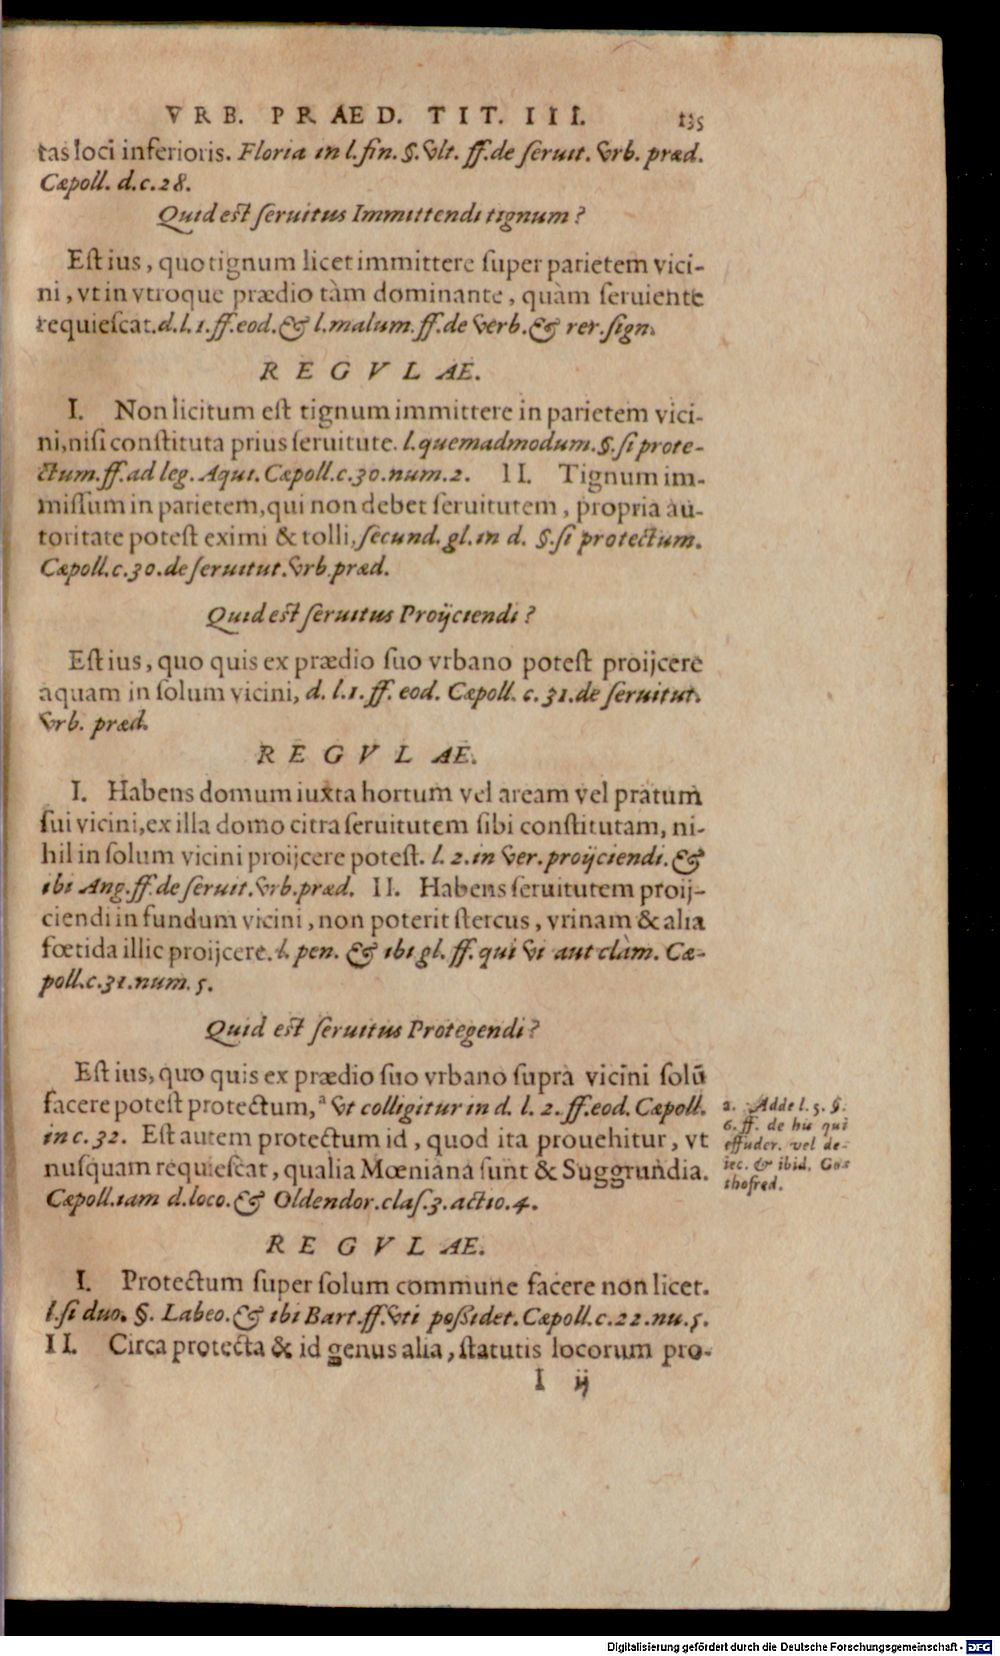 VRB. PRAED. TIT. III. 135
tas loci inferioris. Floria in l. fin. §. vlt. ff. de seruit. vrb. præd.
Cæpoll. d. c. 28.
Quid est seruitus Immittendi tignum?
Est ius, quo tignum licet immittere super parietem vici-
ni, vt in vtroque prædio tàm dominante, quàm seruiente
requiescat. d. l. 1. ff. eod. & l. malum. ff. de verb. & rer. sign.
REGVLAE.
I. Non licitum est tignum immittere in parietem vici-
ni, nisi constituta prius seruitute. l. quemadmodum. §. si prote-
ctum. ff. ad leg. Aqui. Cæpoll. c. 30. num. 2. II. Tignum im-
missum in parietem, qui non debet seruitutem, propria au-
toritate potest eximi & tolli, secund. gl. in d. §. si protectum.
Cæpoll. c. 30. de seruitut. vrb. præd.
Quid est seruitus Proijciendi?
Est ius, quo quis ex prædio suo vrbano potest proijcere
aquam in solum vicini, d. l. 1. ff. eod. Cæpoll. c. 31. de seruitut.
vrb. præd.
REGVLAE.
I. Habens domum iuxta hortum vel aream vel pratum
sui vicini, ex illa domo citra seruitutem sibi constitutam, ni-
hil in solum vicini proijcere potest. l. 2. in ver. proijciendi. &
ibi Ang. ff. de seruit. vrb. præd. II. Habens seruitutem proij-
ciendi in fundum vicini, non poterit stercus, vrinam & alia
fœtida illic proijcere. l. pen. & ibi gl. ff. qui vi aut clàm. Cæ-
poll. c. 31. num. 5.
Quid est seruitus Protegendi?
Est ius, quo quis ex prædio suo vrbano supra vicini solū
facere potest protectum, ª vt colligitur in d. l. 2. ff. eod. Cæpoll.
in c. 32. Est autem protectum id, quod ita prouehitur, vt
nusquam requiescat, qualia Mœniana sunt & Suggrundia.
Cæpoll. iam d. loco. & Oldendor. clas. 3. actio. 4.
a. Adde l. 5. §.
6. ff. de his qui
effuder. vel de-
iec. & ibid. Go-
thofred.
REGVLAE.
I. Protectum super solum commune facere non licet.
l. si duo. §. Labeo. & ibi Bart. ff. vti possidet. Cæpoll. c. 22. nu. 5.
II. Circa protecta & id genus alia, statutis locorum pro-
I ij
Digitalisierung gefördert durch die Deutsche Forschungsgemeinschaft - DFG